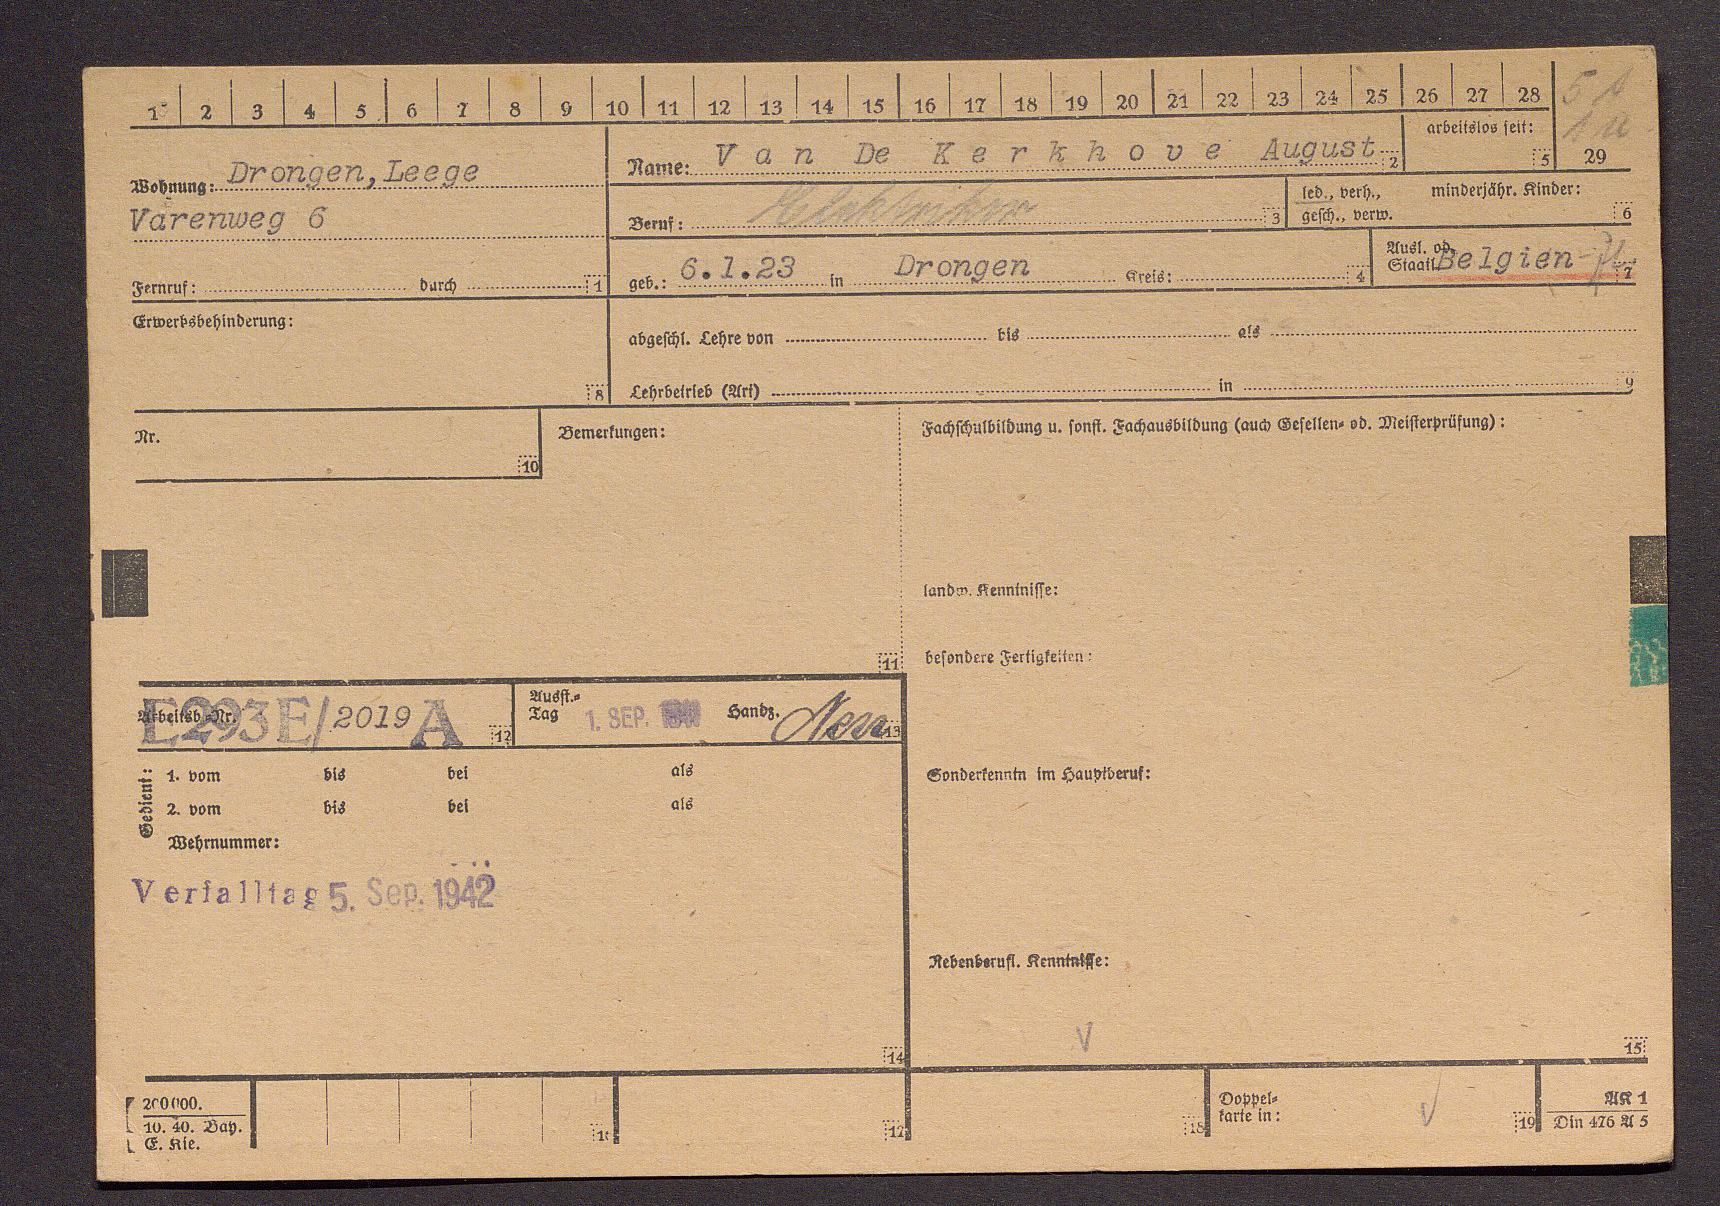 1 2 3 4 5 6 7 8 9 10 11 12 13 14 15 16 17 18 19 20 21 22 23 24 25 26 27 28
arbeitslos seit: 5 29
Wohnung: Drongen, Leege
Varenweg 6
Fernruf: durch 1
Name: Van De Kerkhove August 2
Beruf: Elektriker 3
led., verh., gesch., verw.
minderjähr. Kinder: 6
geb.: 6.1.23 in Drongen Kreis: 4
Ausl. od. Staatl. Belgien 7
Erwerbsbehinderung: 8
abgeschl. Lehre von bis als
Lehrbetrieb (Art) in 9
Nr. 10
Bemerkungen: 11
Fachschulbildung u. sonst. Fachausbildung (auch Gesellen- od. Meisterprüfung):
landw. Kenntnisse:
besondere Fertigkeiten:
Arbeitsb.-Nr. E293E/2019A 12
Ausst.-Tag 1. SEP. Handz. 13
Gedient:
1. vom bis bei als
2. vom bis bei als
Wehrnummer:
Verfalltag 5. Sep. 1942
14
Sonderkenntn im Hauptberuf:
Nebenberufl. Kenntnisse:
15
200000.
10. 40. Bay.
E. Kie.
16 17 18
Doppel-
karte in: 19
AK 1
Din 476 A 5